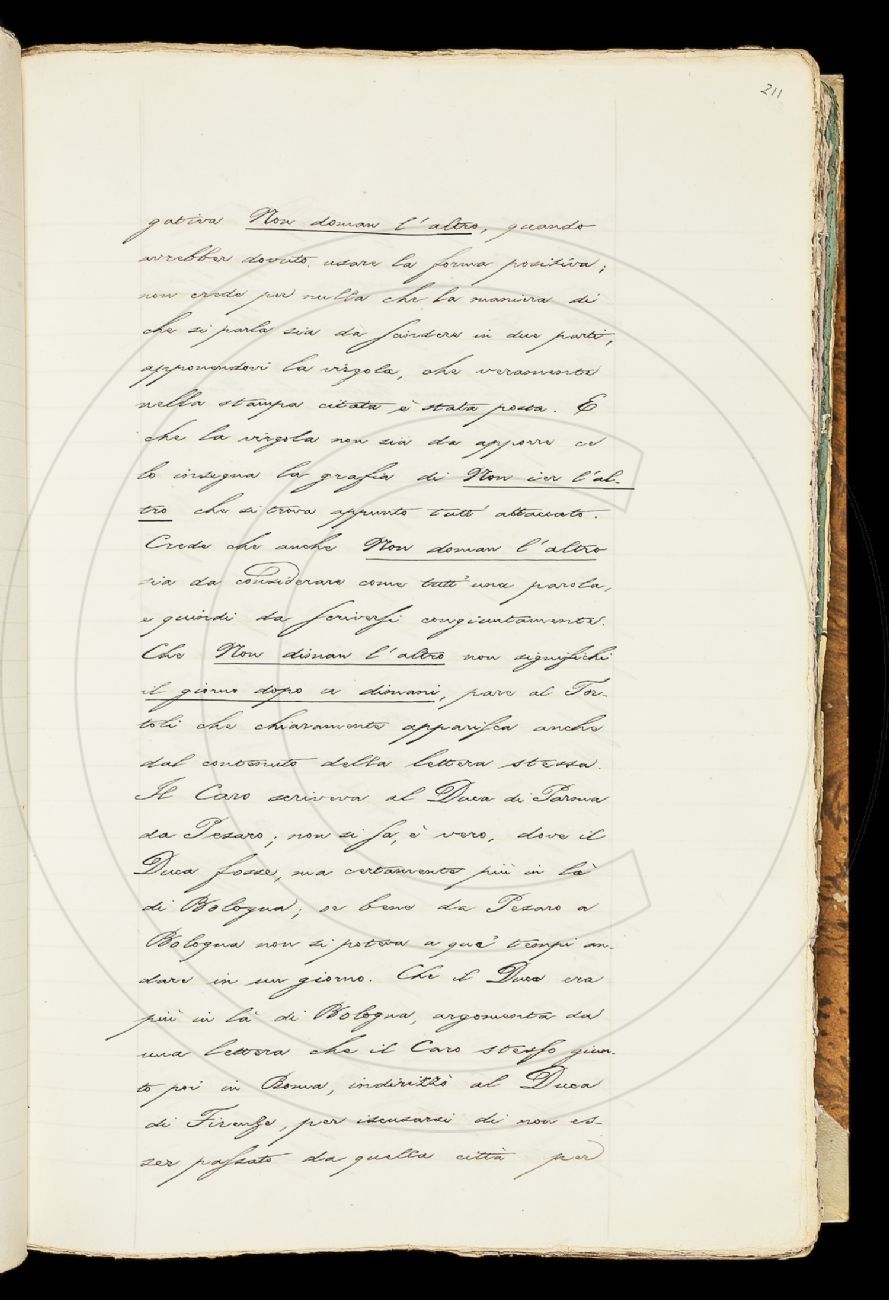 211
gativa Non doman l'altro, quando
avrebber dovuto usare la forma positiva;
non crede per nulla che la maniera di
che si parla sia da scindere in due parti,
apponendovi la virgola, che veramente
nella stampa citata è stata posta. E
che la virgola non sia da apporre ce
lo insegna la grafia di Non ier l'al-
tro che si trova appunto tutt' attaccato.
Crede che anche Non doman l'altro
sia da considerare come tutt' una parola,
e quindi da scriversi congiuntamente.
Che Non diman l'altro non significhi
il giorno dopo a dimani, pare al Tor-
toli che chiaramente apparisca anche
dal contenuto della lettera stessa.
Il Caro scriveva al Duca di Parma
da Pesaro; non si sa, è vero, dove il
Duca fosse, ma certamente più in là
di Bologna; se bene da Pesaro a
Bologna non si poteva a que' tempi an-
dare in un giorno. Che il Duca era
più in là di Bologna, argomenta da
una lettera che il Caro stesso giun-
to poi in Roma, indirizzò al Duca
di Firenze, per iscusarsi di non es-
ser passato da quella città per